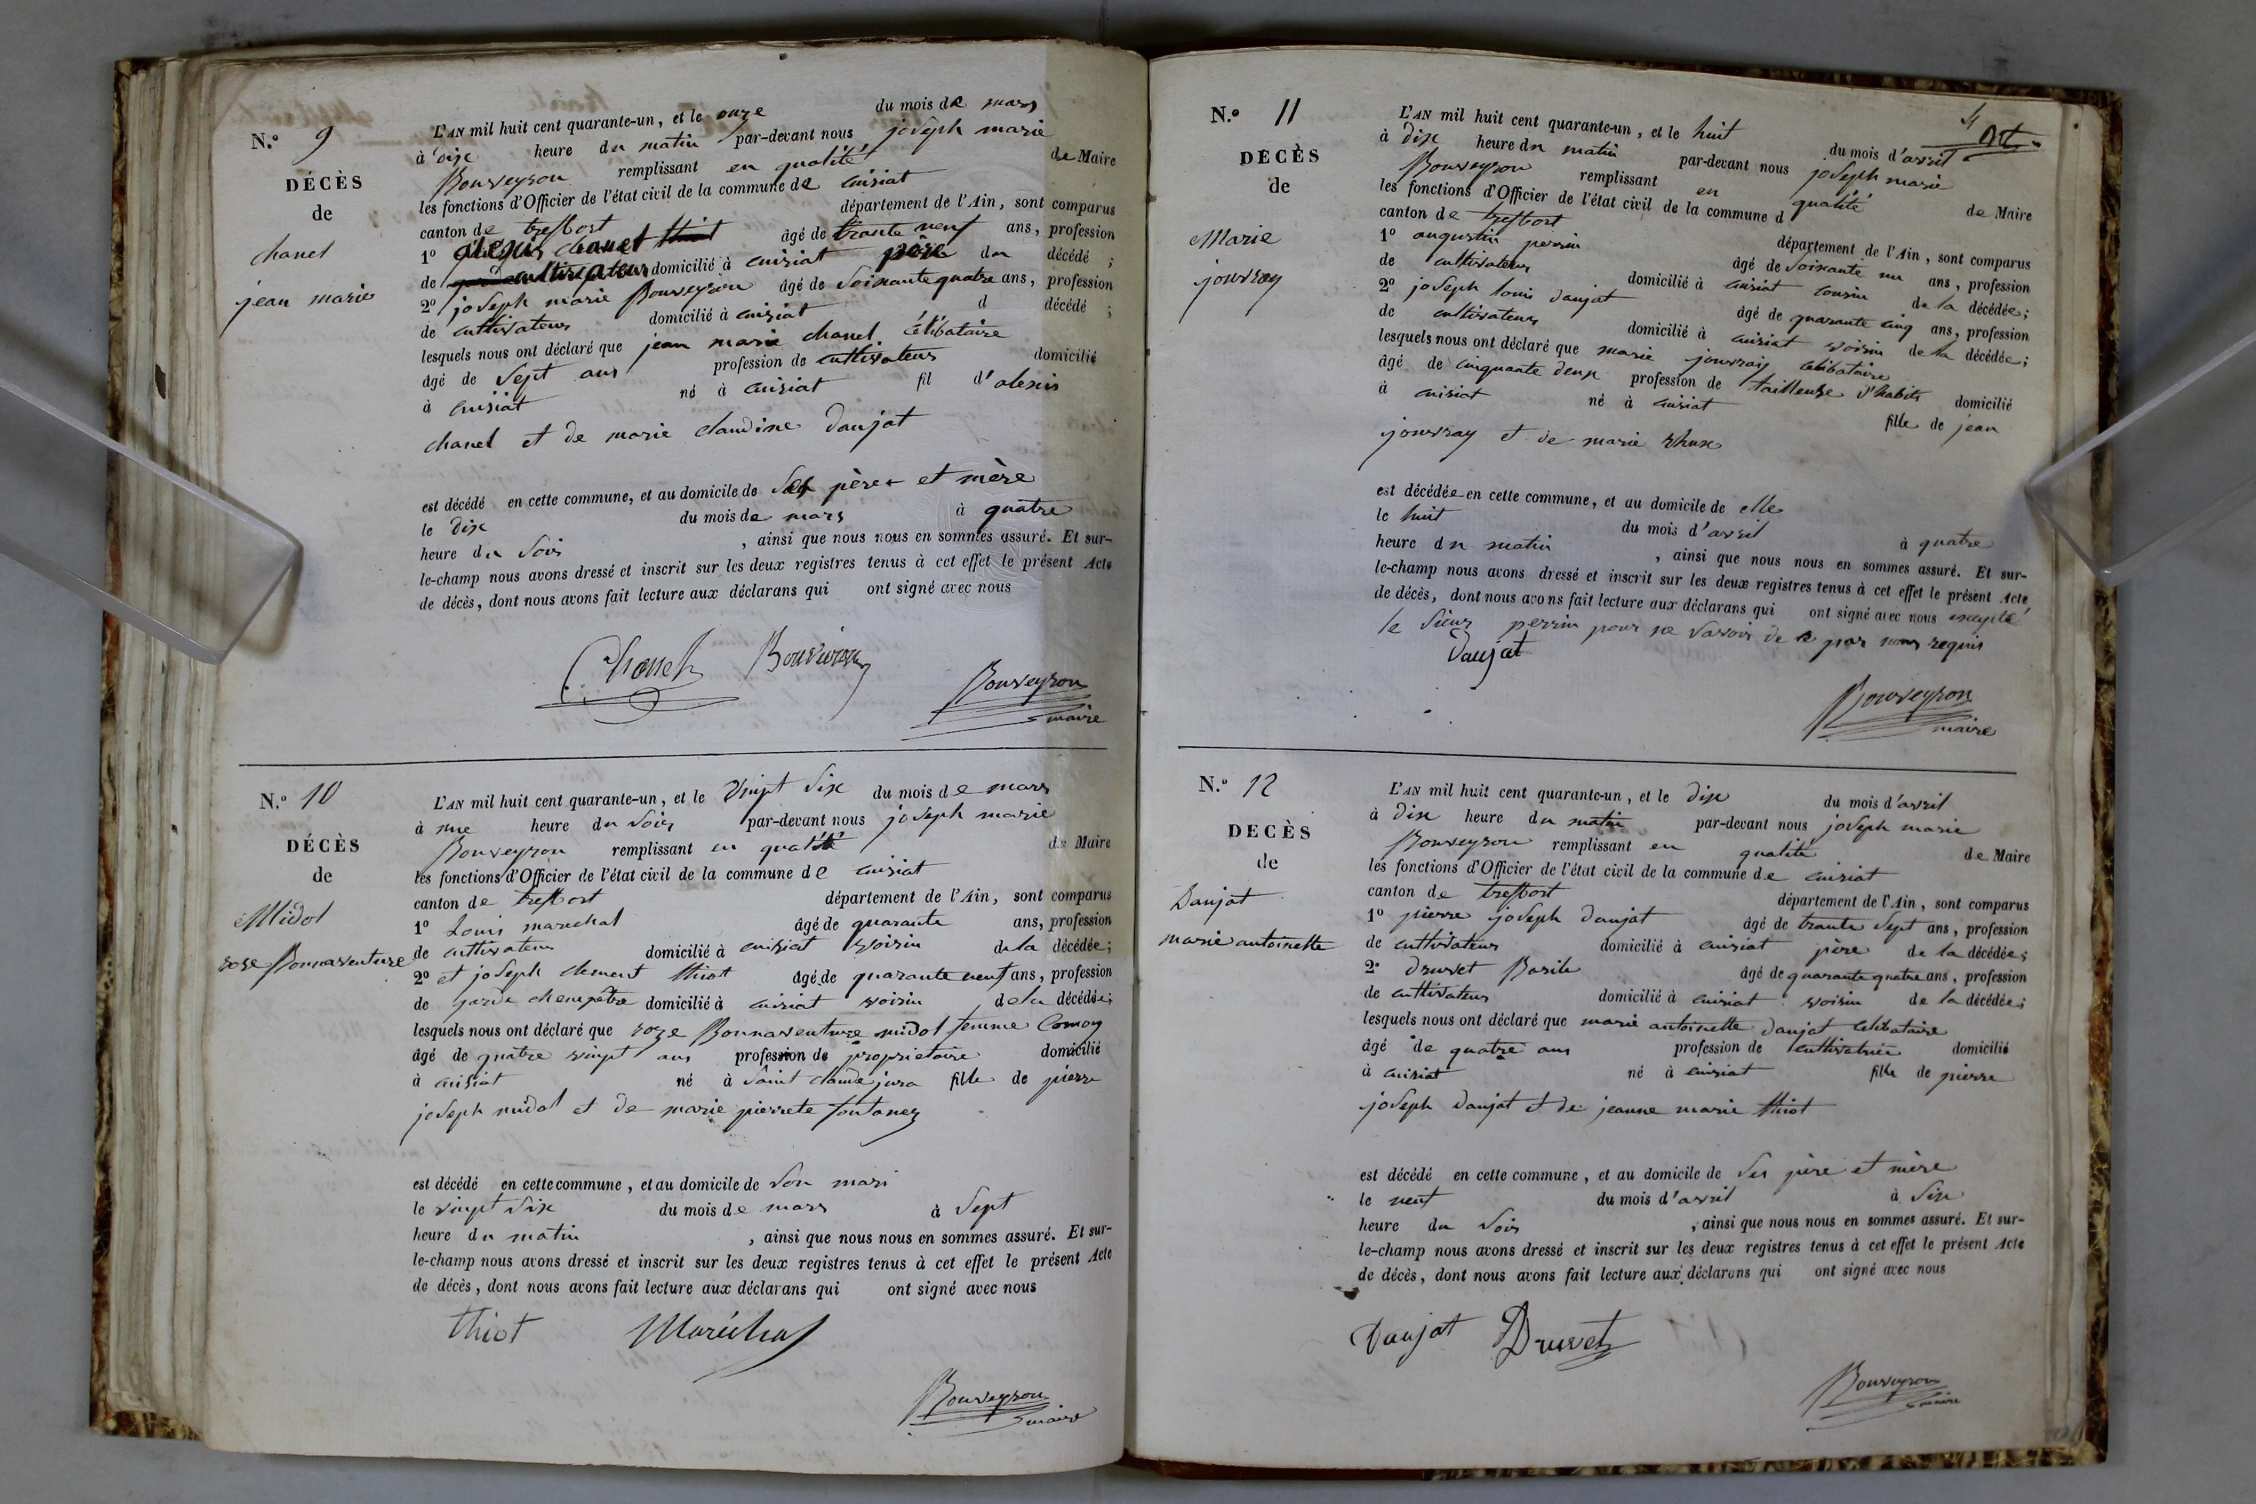 N.º 9
DÉCÈS
de
chanel
jean marie
L'AN mil huit cent quarante-un, et le onze du mois de mars
à dix heure du matin par-devant nous joseph marie
Bouveyron remplissant en qualité de Maire
les fonctions d'Officier de l'état civil de la commune de cuisiat
canton de treffort département de l'Ain, sont comparus
1º alexis chanel âgé de trante neuf ans, profession
de cultivateur domicilié à cuisiat père du décédé ;
2º joseph marie Bouveyron âgé de Soixante quatre ans, profession
de cultivateur domicilié à cuisiat d décédé ;
lesquels nous ont déclaré que jean marie chanel célibataire
âgé de Sept ans profession de cultivateur domicilié
à cuisiat né à cuisiat fil d'alexis
chanel et de marie claudine Daujat
est décédé en cette commune, et au domicile de Ses père et mère
le dix du mois de mars à quatre
heure du Soir , ainsi que nous nous en sommes assuré. Et sur-
le-champ nous avons dressé et inscrit sur les deux registres tenus à cet effet le présent Acte
de décès, dont nous avons fait lecture aux déclarans qui ont signé avec nous
Chanel Bouveiron
Bouveyron
maire
N.º 10
DÉCÈS
de
Midol
roze Bonnaventure
L'AN mil huit cent quarante-un, et le vingt Six du mois de mars
à une heure du Soir par-devant nous joseph marie
Bouveyron remplissant en qualité de Maire
les fonctions d'Officier de l'état civil de la commune de cuisiat
canton de treffort département de l'Ain, sont comparus
1º Louis marechal âgé de quarante ans, profession
de cultivateur domicilié à cuisiat voisin de la décédée;
2º et joseph clement thiot âgé de quarante neuf ans, profession
de garde champêtre domicilié à cuisiat voisin de la décédée;
lesquels nous ont déclaré que roze Bonnaventure midol femme Comoy
âgé de quatre vingt ans profession de proprietaire domicilié
à cuisiat né à Saint claude jura fille de pierre
joseph midol et de marie pierrete fontanez
est décédé en cette commune, et au domicile de Son mari
le vingt Six du mois de mars à Sept
heure du matin , ainsi que nous nous en sommes assuré. Et sur-
le-champ nous avons dressé et inscrit sur les deux registres tenus à cet effet le présent Acte
de décès, dont nous avons fait lecture aux déclarans qui ont signé avec nous
thiot Maréchal
Bouveyron
maire
N.º 11
DÉCÈS
de
Marie
jouvray
L'AN mil huit cent quarante-un, et le huit du mois d'avril
à dix heure du matin par-devant nous joseph marie
Bouveyron remplissant en qualité de Maire
les fonctions d'Officier de l'état civil de la commune d
canton de treffort département de l'Ain, sont comparus
1º augustin perrin âgé de Soixante un ans, profession
de cultivateur domicilié à cuisiat cousin de la décédée;
2º joseph louis daujat âgé de quarante cinq ans, profession
de cultivateur domicilié à cuisiat voisin de la décédée;
lesquels nous ont déclaré que marie jouvray célibataire
âgé de cinquante deux profession de tailleuse d'habits domicilié
à cuisiat né à cuisiat fille de jean
jouvray et de marie rhux
est décédée en cette commune, et au domicile de elle
le huit du mois d'avril à quatre
heure du matin , ainsi que nous nous en sommes assuré. Et sur-
le-champ nous avons dressé et inscrit sur les deux registres tenus à cet effet le présent Acte
de décès, dont nous avons fait lecture aux déclarans qui ont signé avec nous excepté
le Sieur perrin pour ne Savoir de ce par nous requis
Daujat
Bouveyron
maire
N.º 12
DÉCÈS
de
Daujat
marie antoinette
L'AN mil huit cent quarante-un, et le dix du mois d'avril
à dix heure du matin par-devant nous joseph marie
Bouveyron remplissant en qualité de Maire
les fonctions d'Officier de l'état civil de la commune de cuisiat
canton de treffort département de l'Ain, sont comparus
1º pierre joseph daujat âgé de trante Sept ans, profession
de cultivateur domicilié à cuisiat père de la décédée;
2º druvet Basile âgé de quarante quatre ans, profession
de cultivateur domicilié à cuisiat voisin de la décédée;
lesquels nous ont déclaré que marie antoinette daujat célibataire
âgé de quatre ans profession de cultivatrice domicilié
à cuisiat né à cuisiat fille de pierre
joseph daujat et de jeanne marie thiot
est décédé en cette commune, et au domicile de Ses père et mère
le neuf du mois d'avril à Six
heure du Soir , ainsi que nous nous en sommes assuré. Et sur-
le-champ nous avons dressé et inscrit sur les deux registres tenus à cet effet le présent Acte
de décès, dont nous avons fait lecture aux déclarans qui ont signé avec nous
Daujat Druvet
Bouveyron
maire